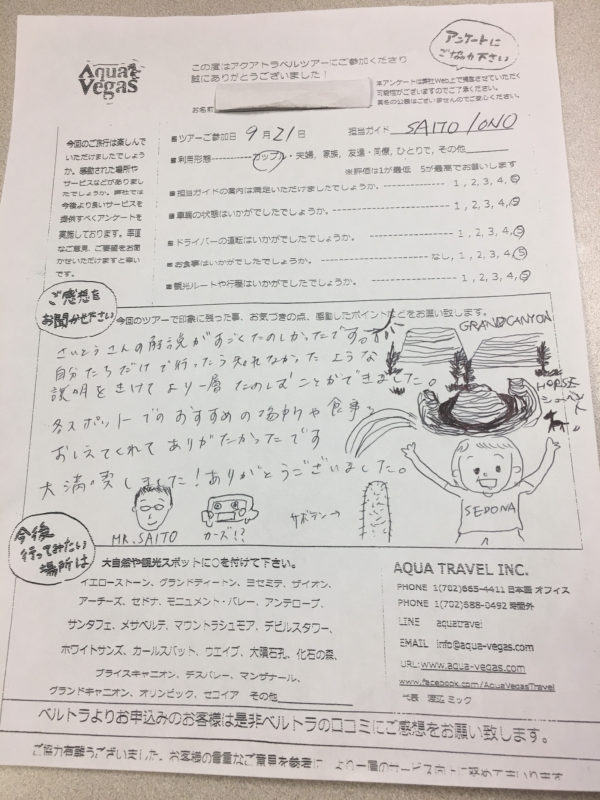 Aqua Vegas
この度はアクアトラベルツアーにご参加くださり
誠にありがとうございました！
アンケートに
ご協力下さい
本アンケートは弊社Web上で掲載させていただく
可能性がございますのでご了承ください。
実名の公開はございませんのでご安心ください。
お名前
今回のご旅行は楽しんで
いただけましたでしょう
か。感動された場所や
サービスなどがありまし
たでしょうか。弊社では
今後より良いサービスを
提供すべくアンケートを
実施しております。率直
なご意見、ご要望をお聞
かせいただけますと幸い
です。
■ツアーご参加日 9月21日 担当ガイド SAITO / ONO
■利用形態 カップル・夫婦、家族、友達・同僚、ひとりで、その他
※評価は1が最低 5が最高でお願いします
■担当ガイドの案内は満足いただけましたでしょうか。 1, 2, 3, 4, 5
■車輌の状態はいかがでしたでしょうか。 1, 2, 3, 4, 5
■ドライバーの運転はいかがでしたでしょうか。 1, 2, 3, 4, 5
■お食事はいかがでしたでしょうか。 なし, 1, 2, 3, 4, 5
■観光ルートや行程はいかがでしたでしょうか。 1, 2, 3, 4, 5
ご感想を
お聞かせ下さい
今回のツアーで印象に残った事、お気づきの点、感動したポイントなどをお願い致します。
さいとうさんの解説がすごくたのしかったです。
自分たちだけで行ったら知れなかったような
説明をきけてより一層たのしむことができました。
各スポットでのおすすめの場所や食事を
おしえてくれてありがたかったです
大満喫しました！ありがとうございました。
GRAND CANYON
HORSE
シューベント
MR. SAITO
カーズ!?
サボテン→
SEDONA
今後
行ってみたい
場所は
大自然や観光スポットに○を付けて下さい。
イエローストーン、グランドティートン、ヨセミテ、ザイオン、
アーチーズ、セドナ、モニュメント・バレー、アンテロープ、
サンタフェ、メサベルデ、マウントラシュモア、デビルスタワー、
ホワイトサンズ、カールスバット、ウエイブ、大隕石孔、化石の森、
ブライスキャニオン、デスバレー、マンザナール、
グランドキャニオン、オリンピック、セコイア その他
AQUA TRAVEL INC.
PHONE 1(702)665-4411 日本語 オフィス
PHONE 1(702)688-0492 時間外
LINE aquatravel
EMAIL info@aqua-vegas.com
URL: www.aqua-vegas.com
www.facebook.com/AquaVegasTravel
代表 渡辺 ミック
ベルトラよりお申込みのお客様は是非ベルトラの口コミにご感想をお願い致します。
ご協力有難うございました。お客様の貴重なご意見を参考に、より一層のサービス向上に努めてまいります